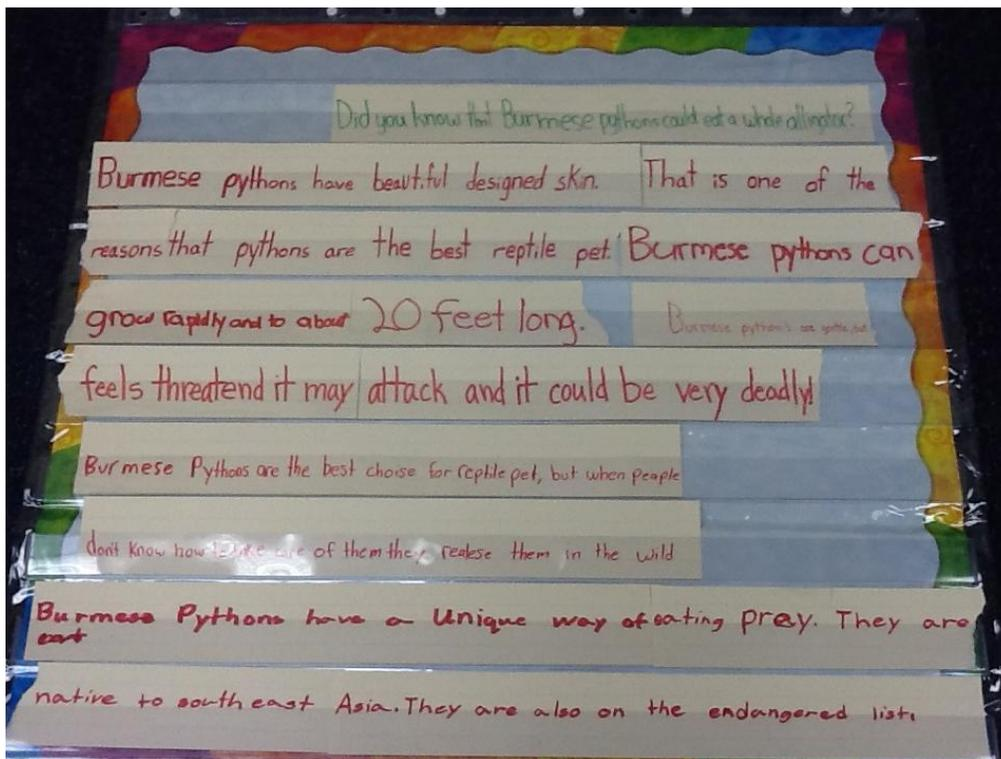 Did you know that Burmese pythons could eat a whole allingator?
Burmese pythons have beautiful designed skin. That is one of the
reasons that pythons are the best reptile pet. Burmese pythons can
grow rapidly and to about 20 feet long. Burmese python's are gentle, but
feels threatend it may attack and it could be very deadly!
Burmese Pythons are the best choise for reptile pet, but when people
don't know how to take of them they realese them in the wild
Burmese Pythons have a Unique way of eating prey. They are
native to south east Asia. They are also on the endangered list.